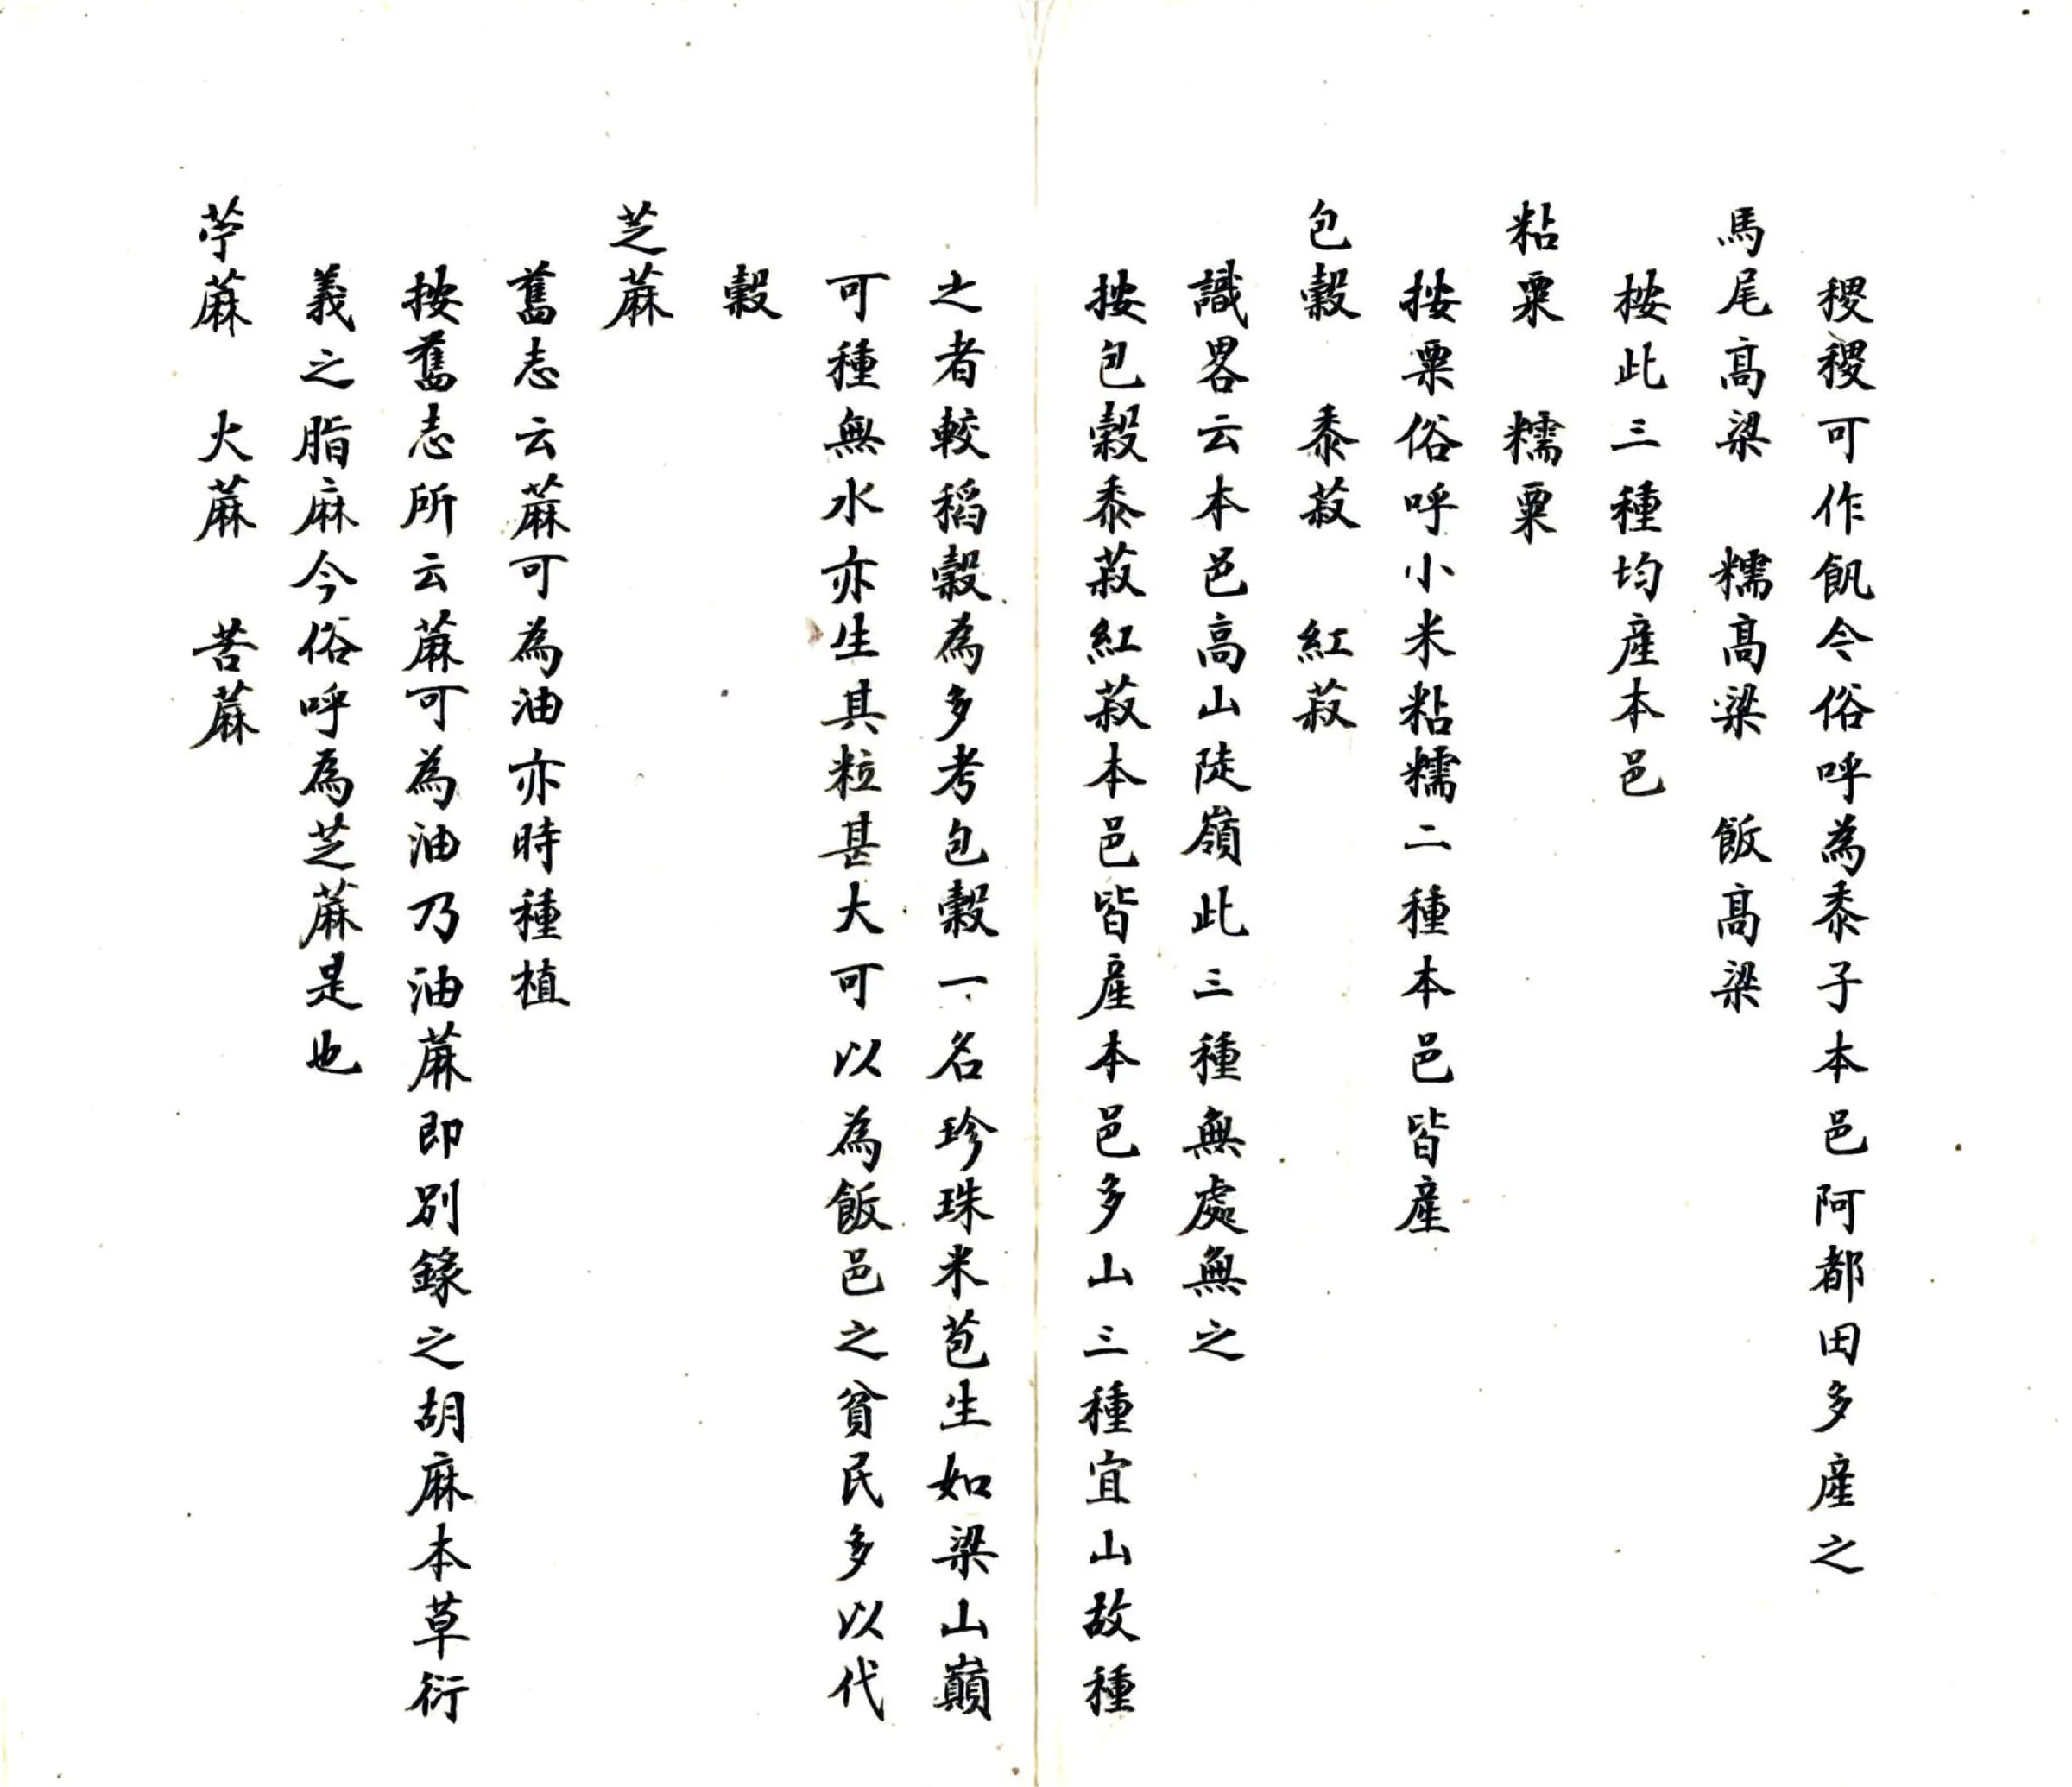 稷稷可作飢今俗呼為黍子本邑阿都田多產之
馬尾高粱　糯高粱　飯高粱
按此三種均產本邑
粘粟　糯粟
按粟俗呼小米粘糯二種本邑皆產
包穀　黍菽　紅菽
識畧云本邑高山陡嶺此三種無處無之
按包穀黍菽紅菽本邑皆產本邑多山三種宜山故種
之者較稻穀為多考包穀一名珍珠米苞生如粱山巔
可種無水亦生其粒甚大可以為飯邑之貧民多以代
穀
芝蔴
舊志云蔴可為油亦時種植
按舊志所云蔴可為油乃油蔴即別錄之胡麻本草衍
義之脂麻今俗呼為芝蔴是也
苧蔴　火蔴　苦蔴